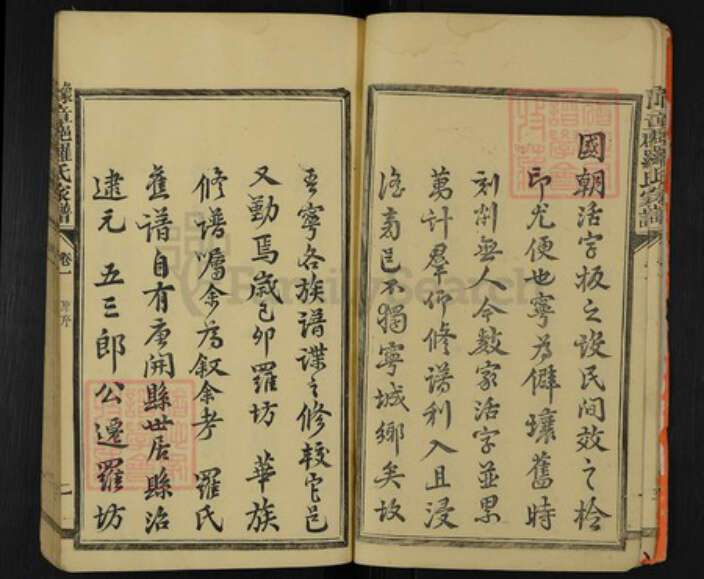 國朝活字板之設民間效之檢
印尤便也寧為僻壤舊時
刻剞無人今數家活字並累
萬計羣仰修譜利入且浸
淫旁邑不獨寧城鄉矣故
吾寧各族譜諜之修較它邑
又勤焉歲己卯羅坊 華族
修譜囑余為叙余考 羅氏
舊譜自有唐開縣世居縣治
逮元 五三郎公遷羅坊
豫章邑羅氏家譜
卷一
FamilySearch